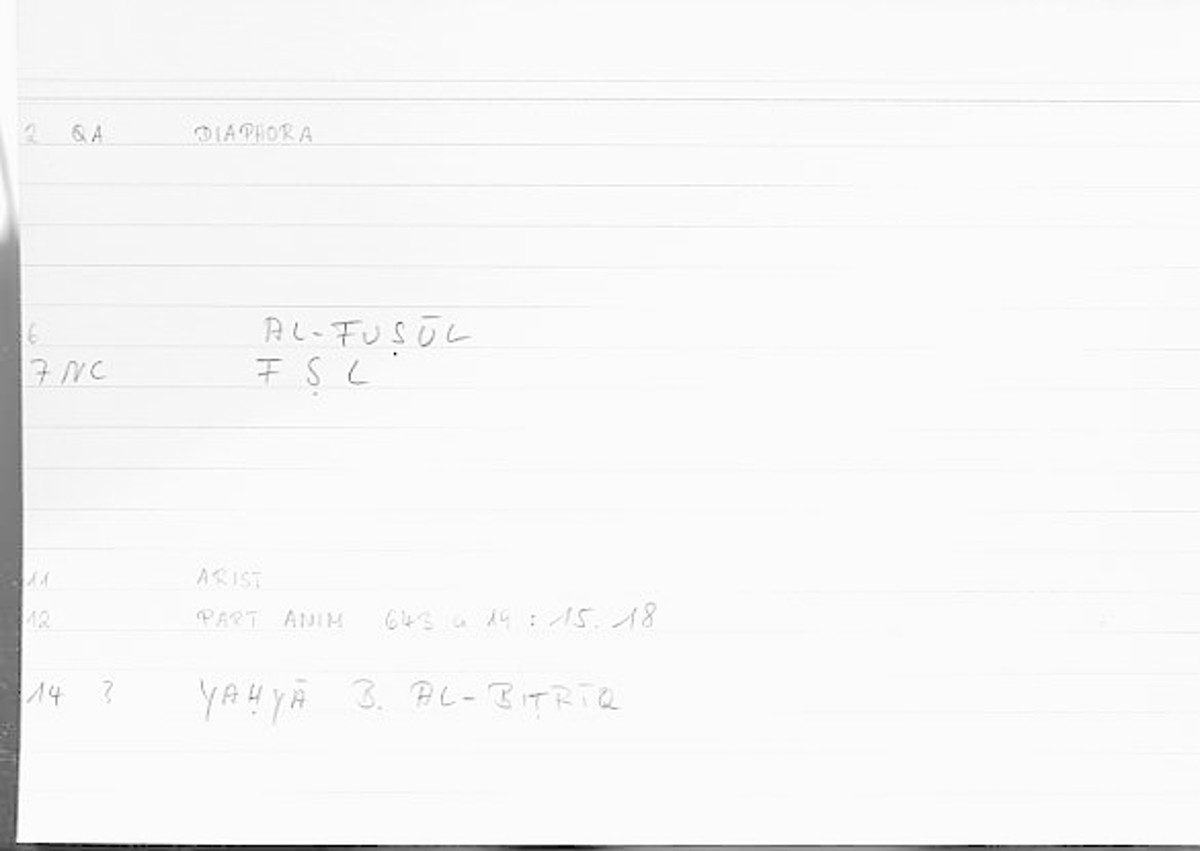 2 QA DIAPHORA
6 AL-FUṢŪL
7 NC F Ṣ L
11 ARIST
12 PART ANIM 643 a 19 : 15.18
14 ? YAḤYĀ B. AL-BIṬRĪQ